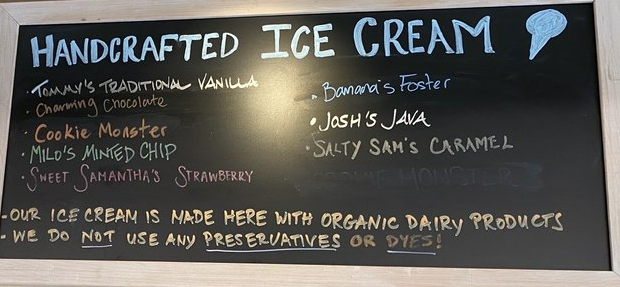 HANDCRAFTED ICE CREAM
· TOMMY'S TRADITIONAL VANILLA
· Charming Chocolate
· Cookie Monster
· MILO'S MINTED CHIP
· SWEET SAMANTHA'S STRAWBERRY
· Banana's Foster
· JOSH'S JAVA
· SALTY SAM'S CARAMEL
COOKIE MONSTER
- OUR ICE CREAM IS MADE HERE WITH ORGANIC DAIRY PRODUCTS
- WE DO NOT USE ANY PRESERVATIVES OR DYES!